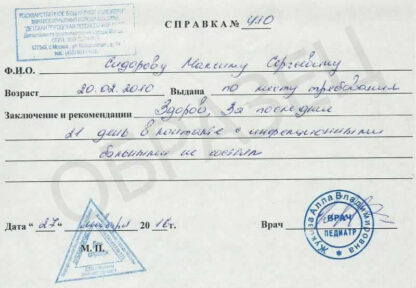 СПРАВКА № 410
Ф.И.О. Сидорову Максиму Сергеевичу
Возраст 20.02.2010 Выдана по месту требования
Заключение и рекомендации Здоров, За последние
21 день в контакте с инфекционными
больными не состоял
ОБРАЗЕЦ
Дата "27" 2016г. Врач
М.П.
Жукова Алла Владимировна
ВРАЧ
ПЕДИАТР